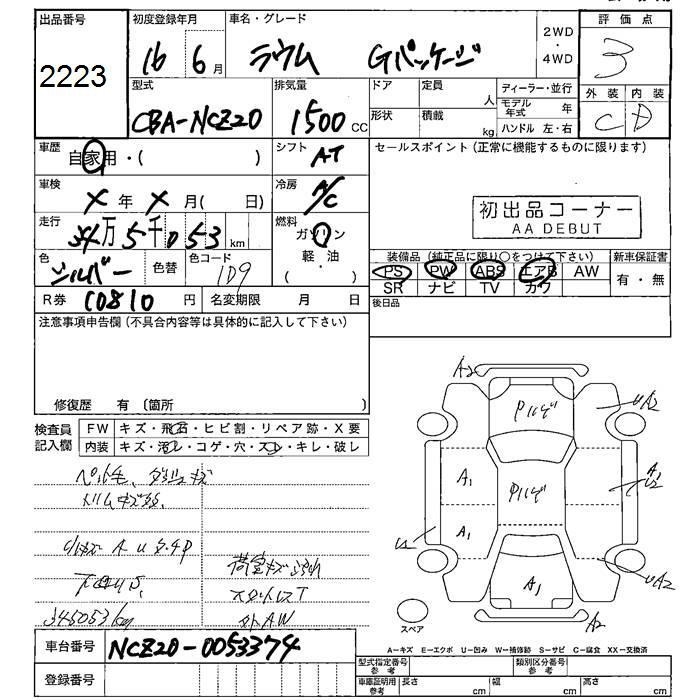 出品番号
2223
初度登録年月
16 6月
車名・グレード
ラウム Gパッケージ
2WD
・
4WD
評価点
3
型式
CBA-NCZ20
排気量
1500 CC
ドア
定員
人
形状
積載
kg
ディーラー・並行
モデル年式 年
ハンドル 左・右
外装 内装
C D
車歴
自家用・( )
シフト
AT
セールスポイント(正常に機能するものに限ります)
車検
X 年 X 月( 日)
冷房
A/C
初出品コーナー
AA DEBUT
走行
34万5千053 km
燃料
ガソリン
軽・油
( )
色
シルバー
色替
色コード
1D9
装備品 (純正品に限り○をつけて下さい)
新車保証書
PS PW ABS エアB AW
SR ナビ TV カワ
有・無
R券 10810 円
名変期限 月 日
後日品
注意事項申告欄(不具合内容等は具体的に記入して下さい)
修復歴 有 (箇所 )
検査員記入欄
FW キズ・飛石・ヒビ割・リペア跡・X要
内装 キズ・汚レ・コゲ・穴・スレ・キレ・破レ
345053km
荷室キズ
外AW
A2
Pハゲ
UA2
A1
Pハゲ
A1
U2
A1
U2
A1
UA2
A2
スペア
車台番号 NCZ20-0053374
登録番号
A-キズ E-エクボ U-凹み W-補修跡 S-サビ C-腐食 XX-交換済
型式指定番号 参考
類別区分番号 参考
車庫証明用 参考
長さ cm
幅 cm
高さ cm